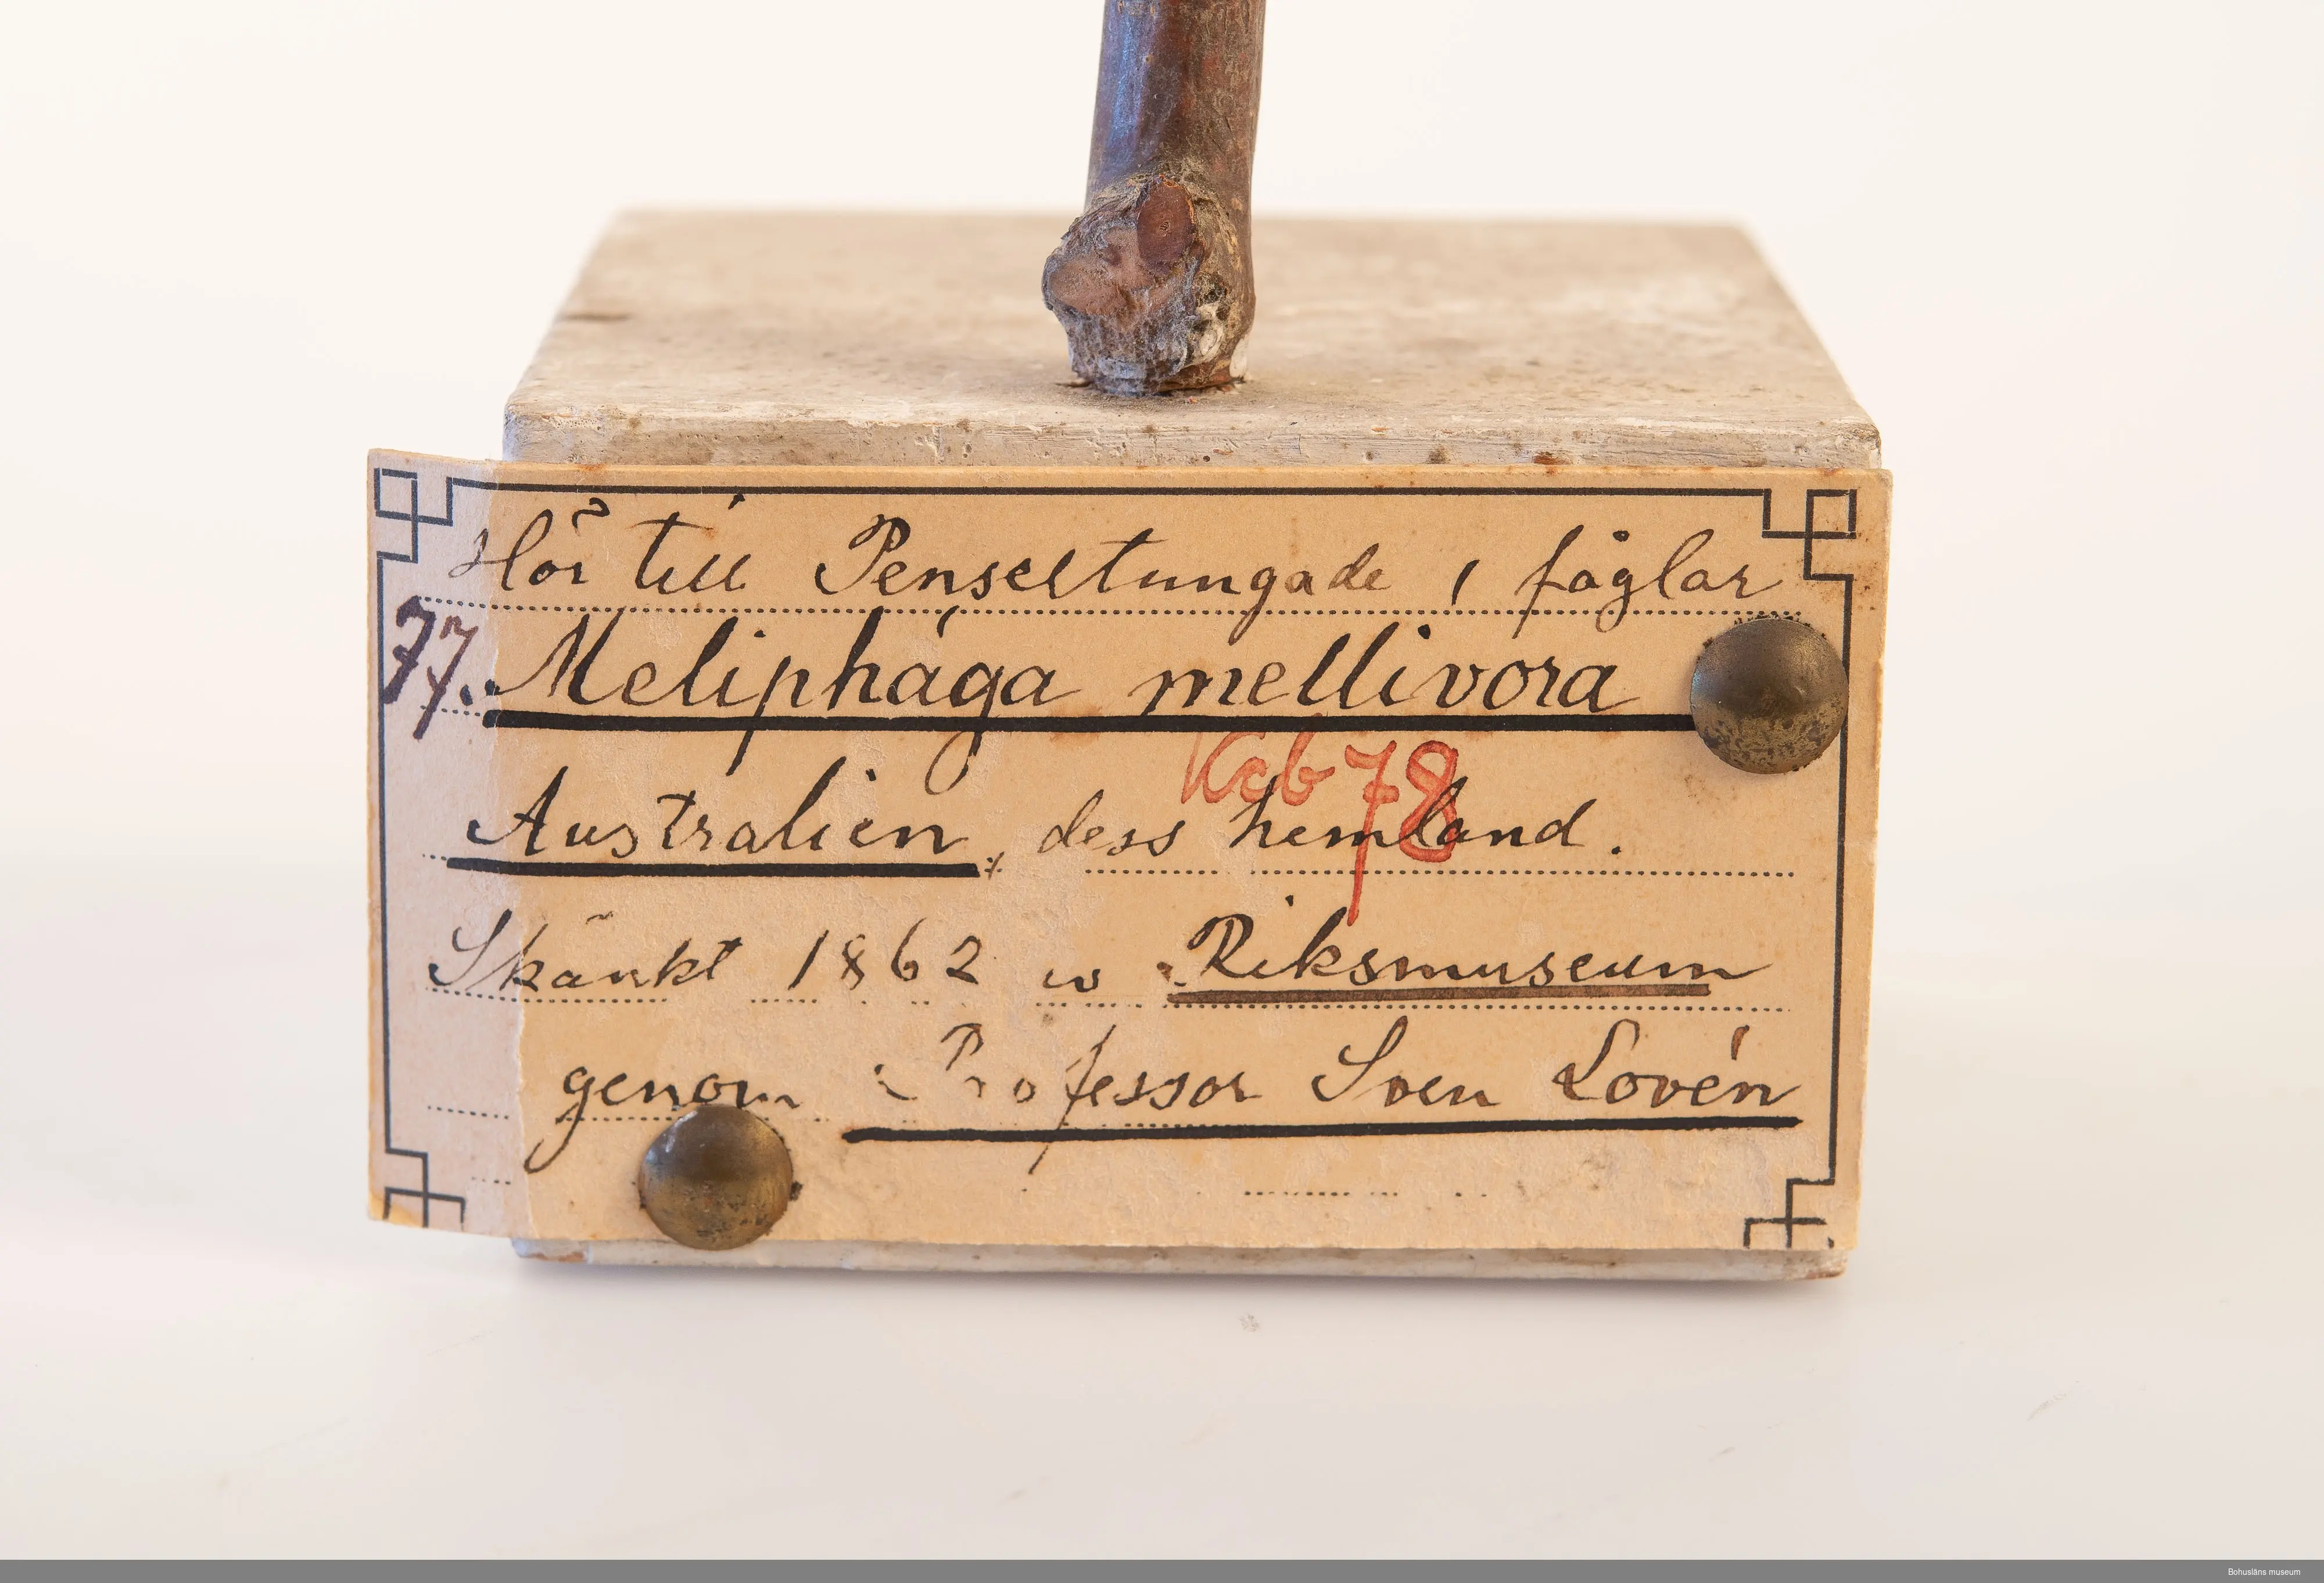 Hör till Penseltungade, fåglar
77. Meliphága mellivora
Kcb 78
Australien, dess hemland.
Skänkt 1862 Riksmuseum
genom Professor Sven Lovén
Bohusläns museum